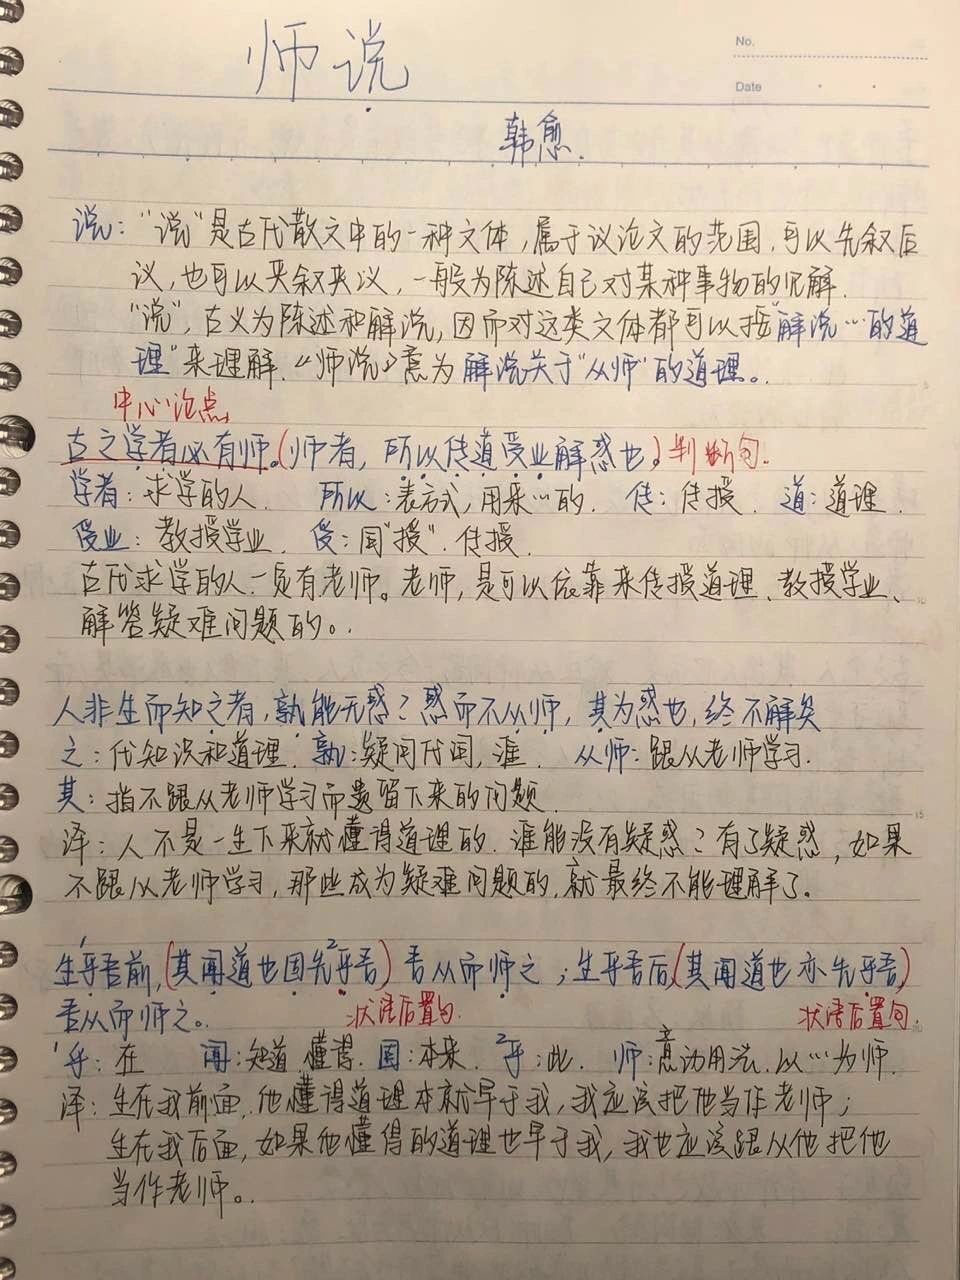 师说
No.
Date
韩愈.
说:"说"是古代散文中的一种文体,属于议论文的范围,可以先叙后
议,也可以夹叙夹议,一般为陈述自己对某种事物的见解.
"说",古义为陈述和解说,因而对这类文体都可以按"解说…的道
理"来理解.《师说》意为解说关于"从师"的道理。
中心论点
古之学者必有师。(师者,所以传道受业解惑也。)判断句.
学者:求学的人. 所以:表方式,用来…的. 传:传授. 道:道理.
受业:教授学业. 受:同"授".传授.
古代求学的人一定有老师。老师,是可以依靠来传授道理、教授学业、
解答疑难问题的。
人非生而知之者,孰能无惑?惑而不从师,其为惑也,终不解矣
之:代知识和道理. 孰:疑问代词,谁. 从师:跟从老师学习.
其:指不跟从老师学习而遗留下来的问题.
译:人不是一生下来就懂得道理的.谁能没有疑惑?有了疑惑,如果
不跟从老师学习,那些成为疑难问题的,就最终不能理解了。
生乎¹吾前,(其闻道也固先乎²吾)吾从而师之;生乎吾后(其闻道也亦先乎吾)
吾从而师之。 状语后置句. 状语后置句.
¹乎:在 闻:知道.懂得.固:本来. ²乎:比. 师:意动用法.以…为师.
译:生在我前面,他懂得道理本就早于我,我应该把他当作老师;
生在我后面,如果他懂得的道理也早于我,我也应该跟从他把他
当作老师。